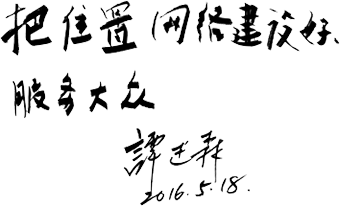 把位置网络建设好、
服务大众
譚述森
2016.5.18.